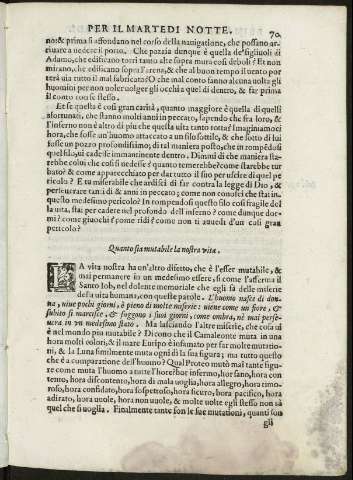 PER IL MARTEDI NOTTE. 70
no: & prima si affondano nel corso della nauigatione, che possano ar-
riuare a uedere il porto. Che pazzia dunque è quella de' figliuoli di
Adamo, che edificano torri tanto alte sopra mura così deboli? Et non
mirano, che edificano sopra l'arena, & che al buon tempo il uento por
terà uia tutto il mal fabricato? O che mal conto fanno alcuna uolta gli
huomini per non uoler uolger gli occhi a quel di dentro, & far prima
il conto con se stesso.
Et se questa è così gran cecità, quanto maggiore è quella di quelli
sfortunati, che stanno molti anni in peccato, sapendo che fra loro, &
l'inferno non è altro di piu che questa uita tanto totta? Imaginiamoci
hora, che fosse un'huomo attaccato a un filo sottile, & che sotto di lui
fosse un pozzo profondissimo; di tal maniera posto, che in rompédosi
quel filo, ui cadesse immantinente dentro. Dimmi di che maniera sta-
rebbe colui che così si uedesse? quanto temerebbe? come starebbe tur
bato? & come apparecchiato per dar tutto il suo per uscire di quel pe
ricolo? E tu miserabile che ardisci di far contra la legge di Dio, &
perseuerare tanti dì & anni in peccato; come non conosci che stai in-
questo medesimo pericolo? In rompendosi questo filo così fragile del
la uita, stai per cadere nel profondo dell inferno? come dunque dor-
mi? come giuochi? come ridi? come non ti auuedi d'un così gran
pericolo?
Quanto sia mutabile la nostra vita.
LA vita nostra ha un'altro difetto, che è l'esser mutabile, &
mai permanere in un medesimo essere, sì come l'afferma il
Santo Iob, nel dolente memoriale che egli fà delle miserie
della uita humana, con queste parole. L'huomo nasce di don-
na, viue pochi giorni, è pieno di molte miserie: viene come un fiore, &
subito si marcisce, & fuggono i suoi giorni, come ombra, nè mai perse-
uera in vn medesimo stato. Ma lasciando l'altre miserie, che cosa ui
è nel mondo più mutabile? Dicono che il Camaleonte muta in una
hora molti colori, & il mare Euripo è infamato per far molte mutatio-
ni, & la Luna similmente muta ogni dì la sua figura; ma tutto questo
che è a comparatione dell'huomo? Qual Proteo mutò mai tante figu-
re come muta l'huomo a tutte l'hore? hor infermo, hor sano, hora con
tento, hora discontento, hora di mala uoglia, hora allegro, hora timo-
roso, hora confidato, hora sospettoso, hora sicuro, hora pacifico, hora
adirato, hora uuole, hora non uuole, & molte uolte egli stesso non sà
quel che si uoglia. Finalmente tante son le sue mutationi, quanti son
gli